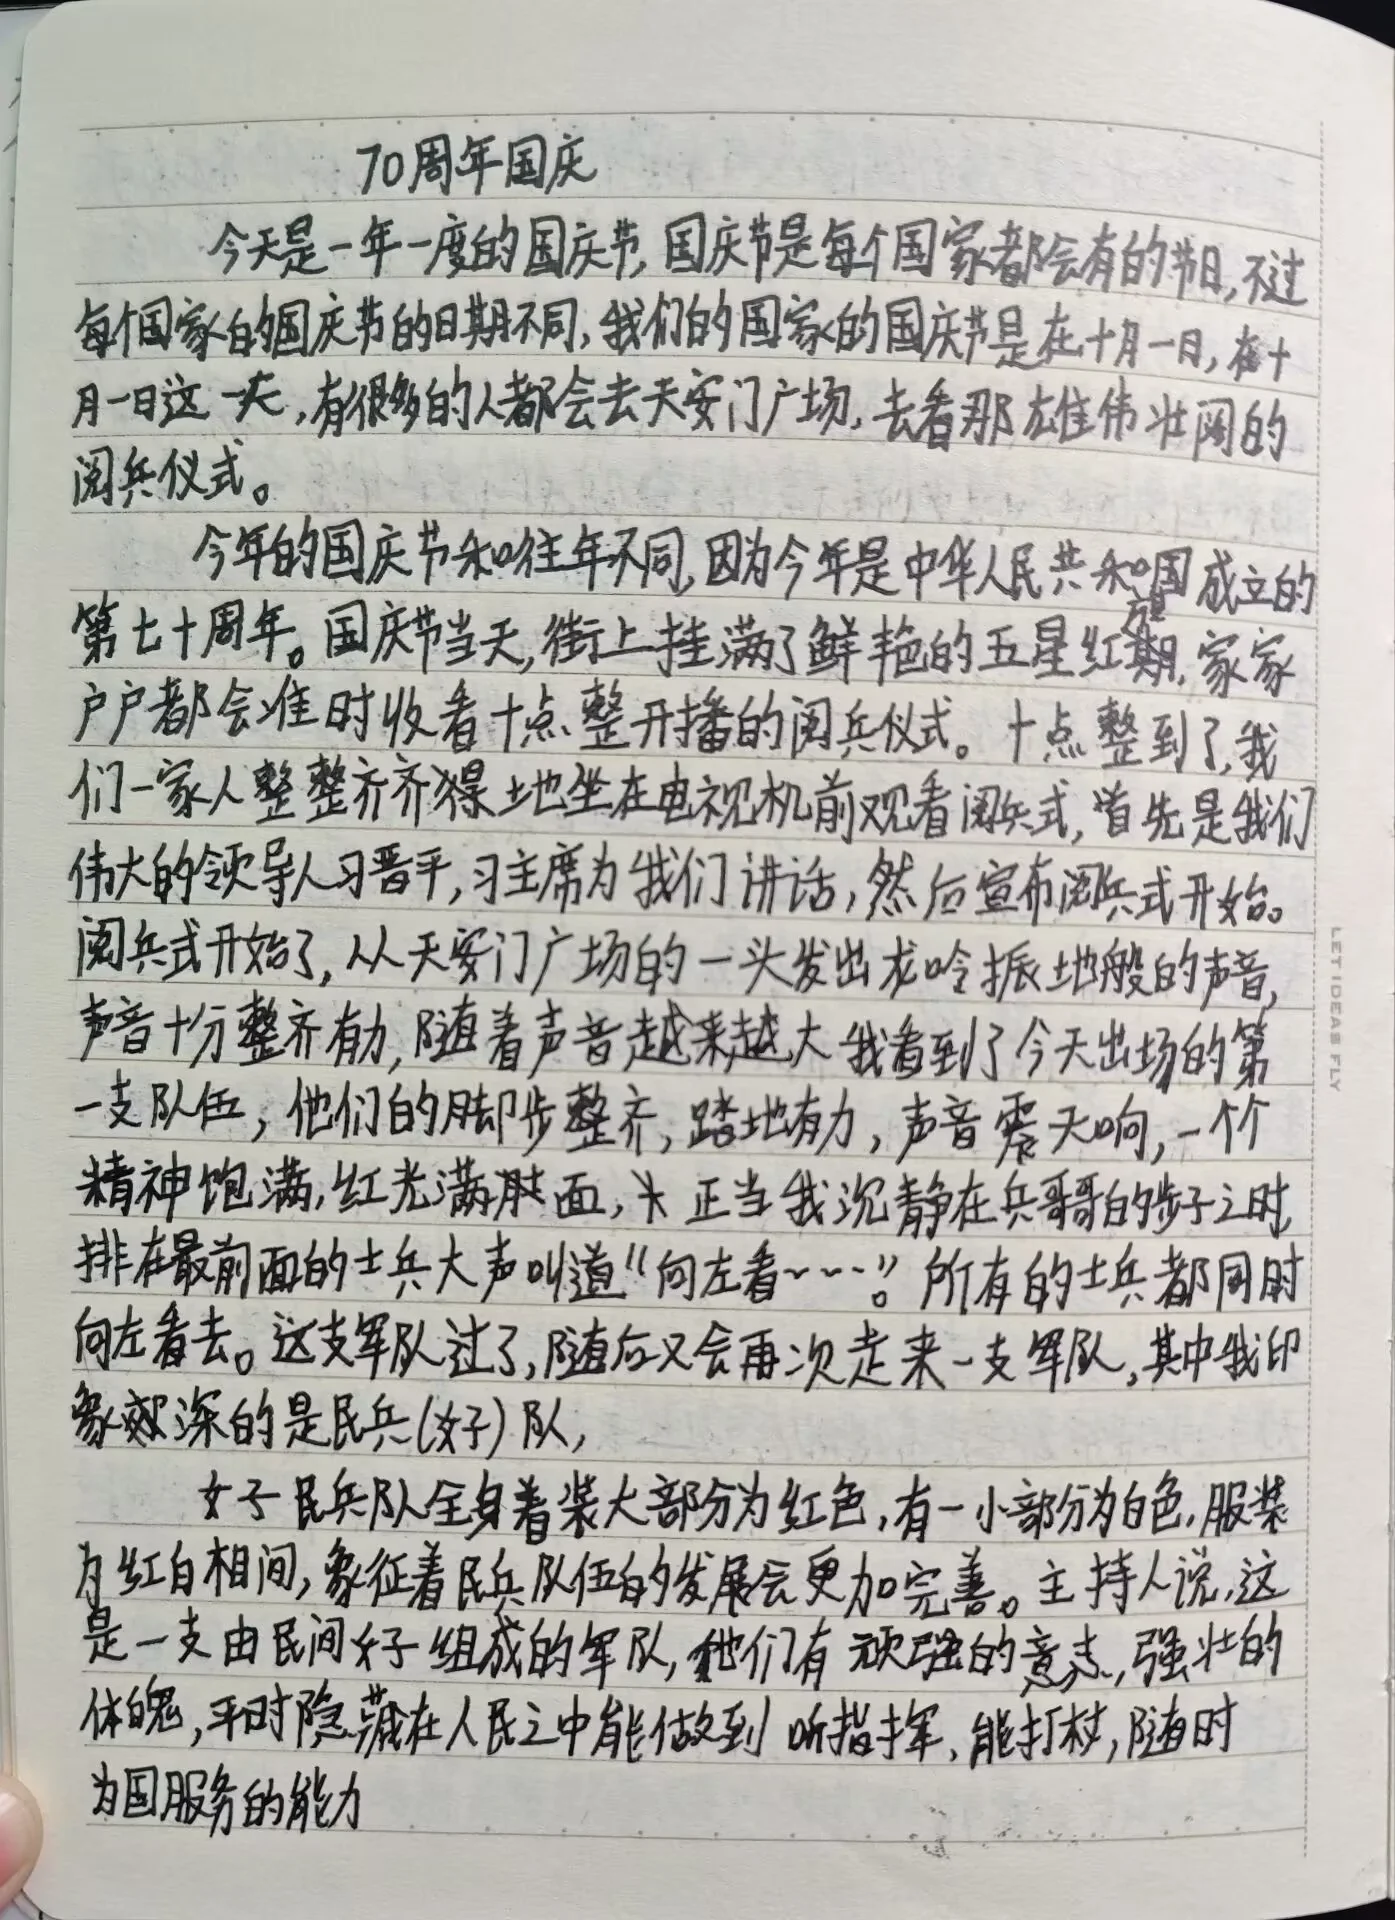 70周年国庆
今天是一年一度的国庆节,国庆节是每个国家都会有的节日,不过
每个国家的国庆节的日期不同,我们的国家的国庆节是在十月一日,在十
月一日这一天,有很多的人都会去天安门广场,去看那雄伟壮阔的
阅兵仪式。
今年的国庆节和往年不同,因为今年是中华人民共和国成立的
第七十周年。国庆节当天,街上挂满了鲜艳的五星红旗,家家
户户都会准时收看十点整开播的阅兵仪式。十点整到了,我
们一家人整整齐齐得土地坐在电视机前观看阅兵式,首先是我们
伟大的领导人习晋平,习主席为我们讲话,然后宣布阅兵式开始。
阅兵式开始了,从天安门广场的一头发出龙吟振地般的声音,
声音十分整齐有力,随着声音越来越大我看到了今天出场的第
一支队伍,他们的脚步整齐,踏地有力,声音震天响,一个个
精神饱满,红光满面,正当我沉静在兵哥哥的步子之时,
排在最前面的士兵大声叫道“向左看~~~”。所有的士兵都同时
向左看去。这支军队过了,随后又会再次走来一支军队,其中我印
象深的是民兵(女子)队,
女子民兵队全身着装大部分为红色,有一小部分为白色,服装
为红白相间,象征着民兵队伍的发展会更加完善。主持人说,这
是一支由民间女子组成的军队,她们有顽强的意志,强壮的
体魄,平时隐藏在人民之中能做到听指挥,能打杖,随时
为国服务的能力
LET IDEAS FLY